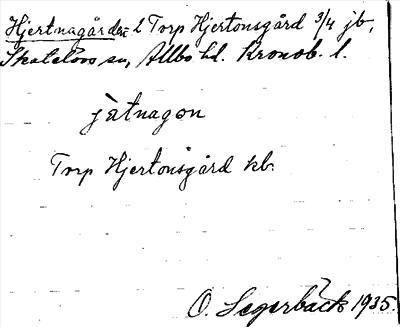 Hjertnagården l Torp Hjertonsgård 3/4 jb,
Skatelövs sn, Allbo hd. Kronob. l.
jàtnagon
Torp Hjertonsgård kb.
O. Segerbäck 1935.